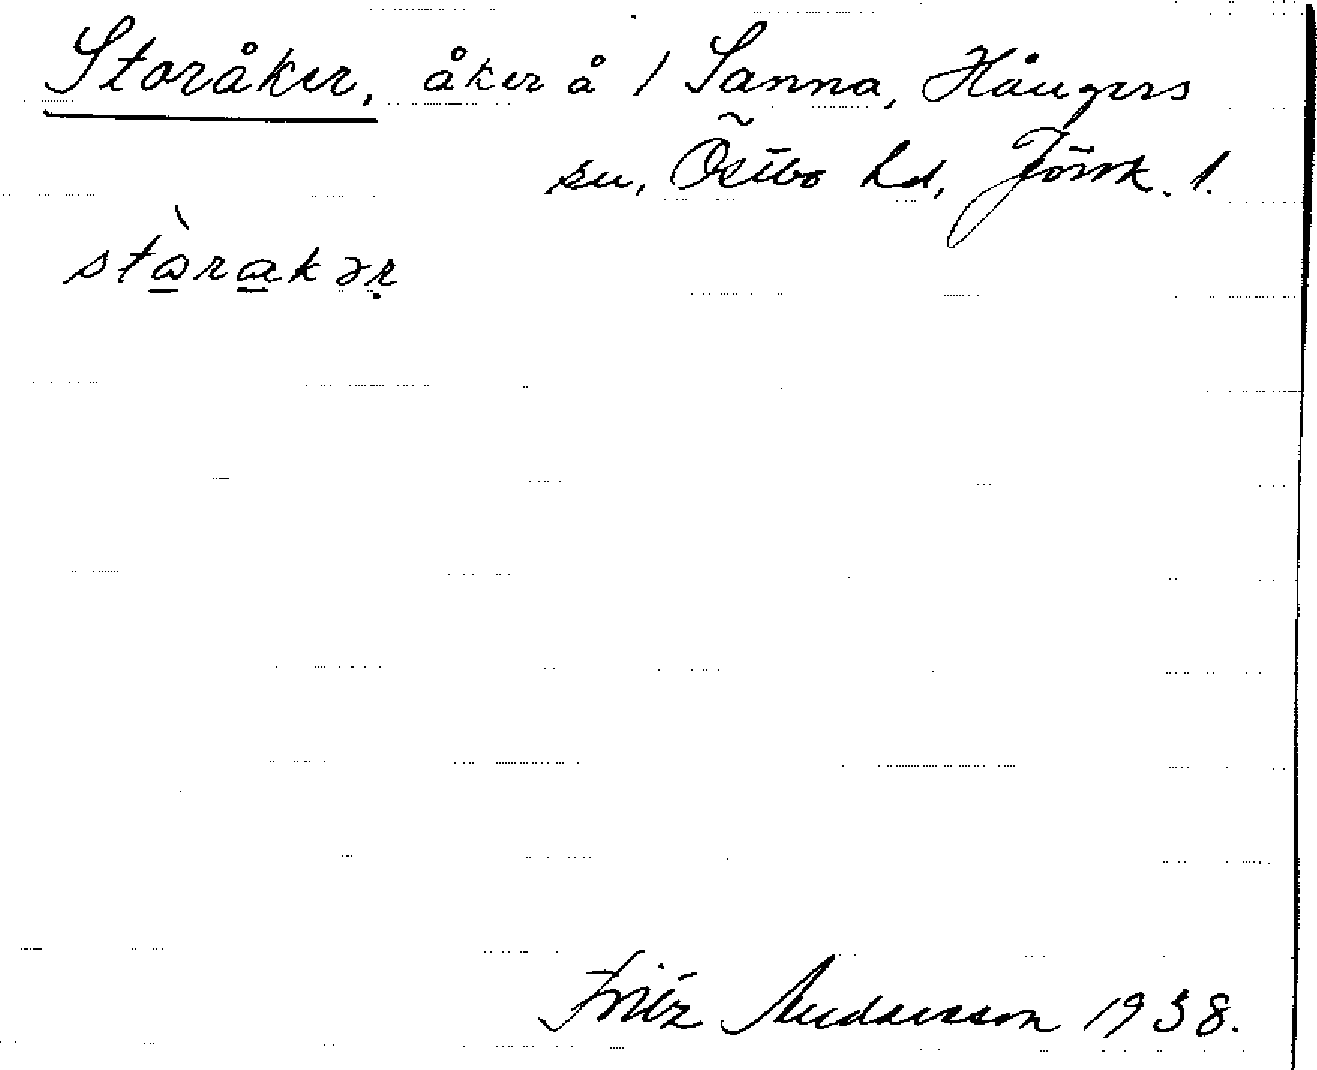 Storåker, åker å 1 Sanna, Hångers
sn, Östbo hd, Jönk. l.
stàrakər
Fritz Andersson 1938.